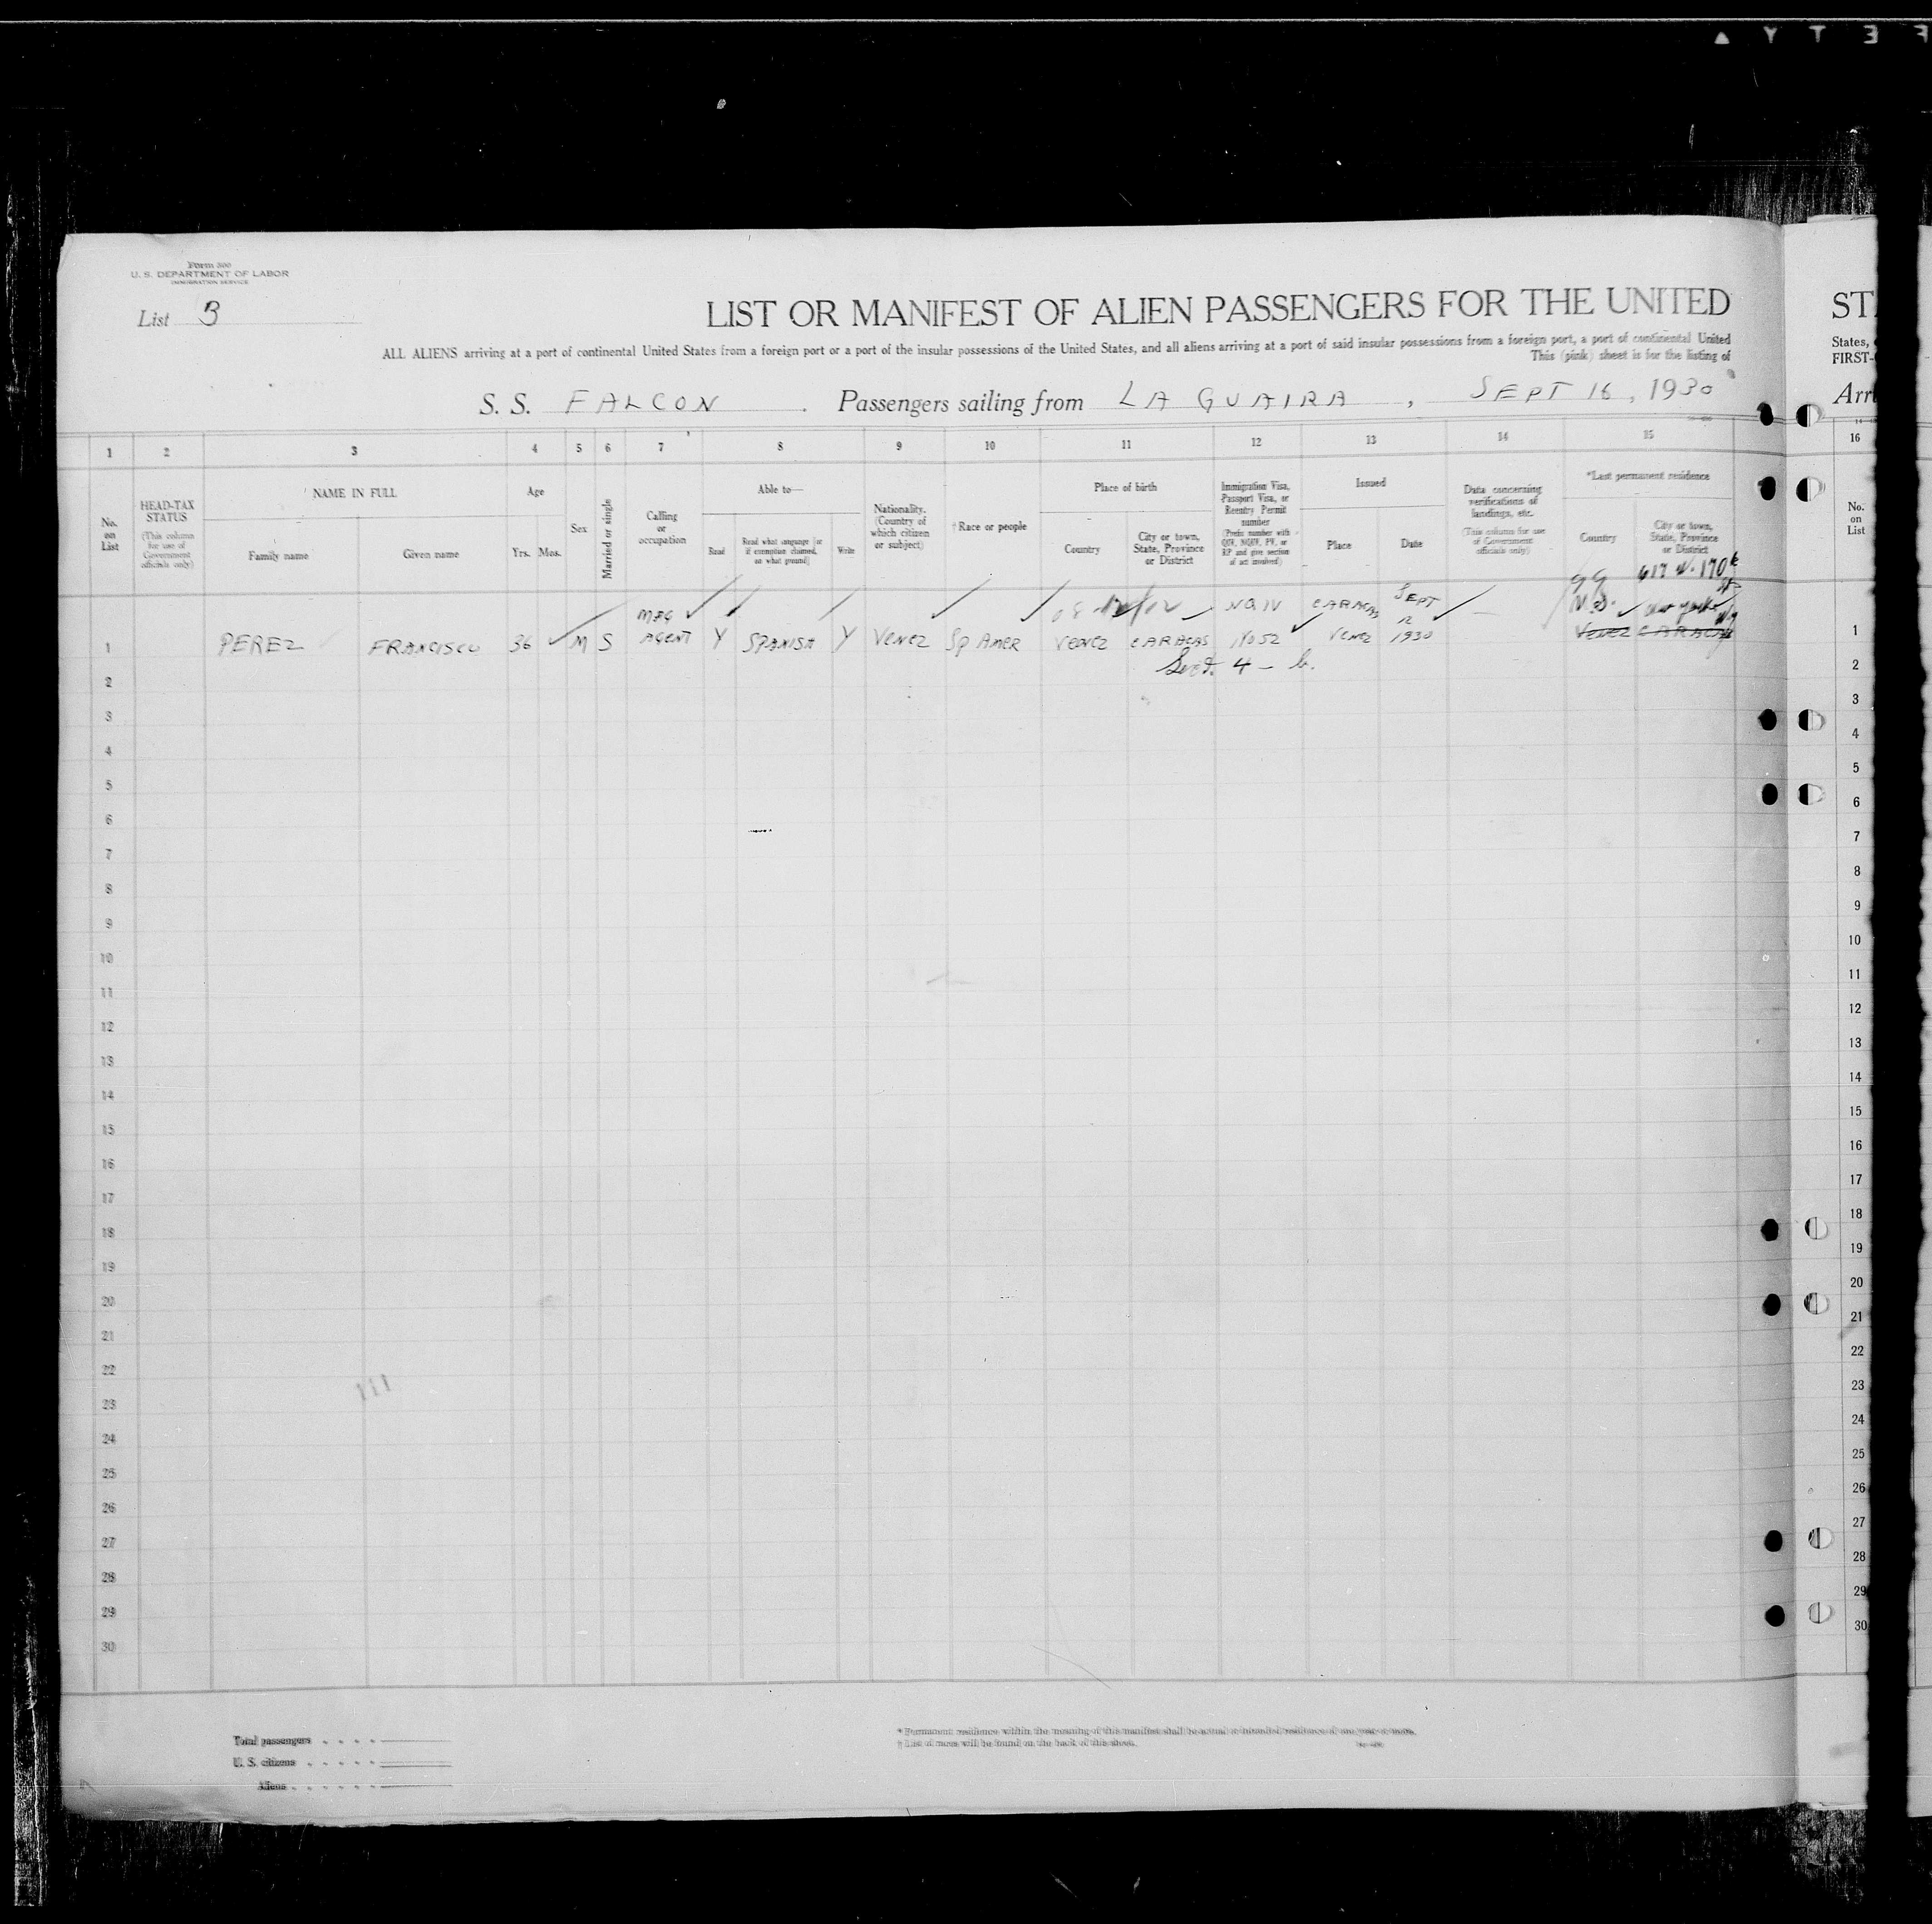 Form 500
U. S. DEPARTMENT OF LABOR
IMMIGRATION SERVICE
List 3
LIST OR MANIFEST OF ALIEN PASSENGERS FOR THE UNITED
ST
ALL ALIENS arriving at a port of continental United States from a foreign port or a port of the insular possessions of the United States, and all aliens arriving at a port of said insular possessions from a foreign port, a port of continental United
States,
This (pink) sheet is for the listing of
FIRST-
S. S. FALCON Passengers sailing from LA GUAIRA, SEPT 16, 1930
Arr
1 2 3 4 5 6 7 8 9 10 11 12 13 14 15 16
No. on List
HEAD-TAX STATUS
(This column for use of Government officials only)
NAME IN FULL
Family name
Given name
Age
Yrs. Mos.
Sex
Married or single
Calling or occupation
Able to—
Read
Read what language [or if exemption claimed, on what ground]
Write
Nationality. (Country of which citizen or subject)
†Race or people
Place of birth
Country
City or town, State, Province or District
Immigration Visa, Passport Visa, or Reentry Permit number
(Prefix number with QIV, NQIV, PV, or RP and give section of act involved)
Issued
Place
Date
Data concerning verifications of landings, etc.
(This column for use of Government officials only)
*Last permanent residence
Country
City or town, State, Province or District
No. on List
617 W. 170
MFG NQIV CARACAS SEPT
12
1 PEREZ FRANCISCO 36 M S AGENT Y SPANISH Y VENEZ SP AMER VENEZ CARACAS VENEZ 1930 VENEZ CARACAS 1
Sect. 4 - b.
2 2
3 3
4 4
5 5
6 6
7 7
8 8
9 9
10 10
11 11
12 12
13 13
14 14
15 15
16 16
17 17
18 18
19 19
20 20
21 21
22 22
23 23
24 24
25 25
26 26
27 27
28 28
29 29
30 30
Total passengers
U. S. citizens
Aliens
* Permanent residence within the meaning of this manifest shall be actual or intended residence of one year or more.
† List of races will be found on the back of this sheet.